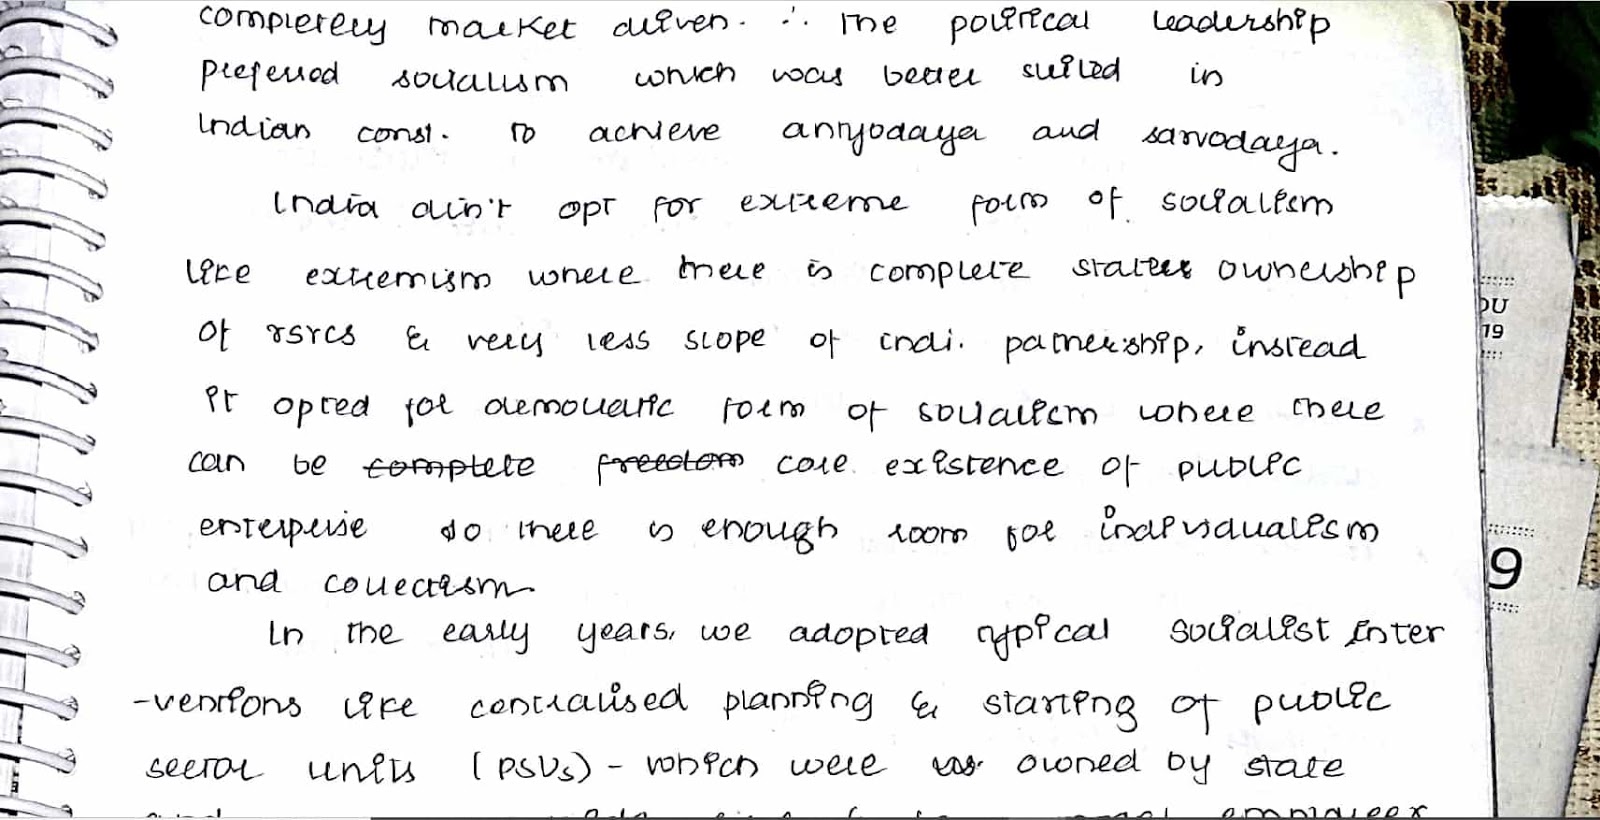 completely market driven. ∴ The political leadership
preferred socialism which was better suited in
Indian const. to achieve antyodaya and sarvodaya.
India din't opt for extreme form of socialism
like extremism where there is complete state ownership
of rsrcs & very less scope of indi. patnership, instead
it opted for democratic form of socialism where there
can be complete freedom core existence of public
enterprise so there is enough room for individualism
and collectism
In the early years, we adopted typical socialist inter
-ventions like centralised planning & starting of public
sector units (PSUs) - which were owned by state
employees
OU
19
9